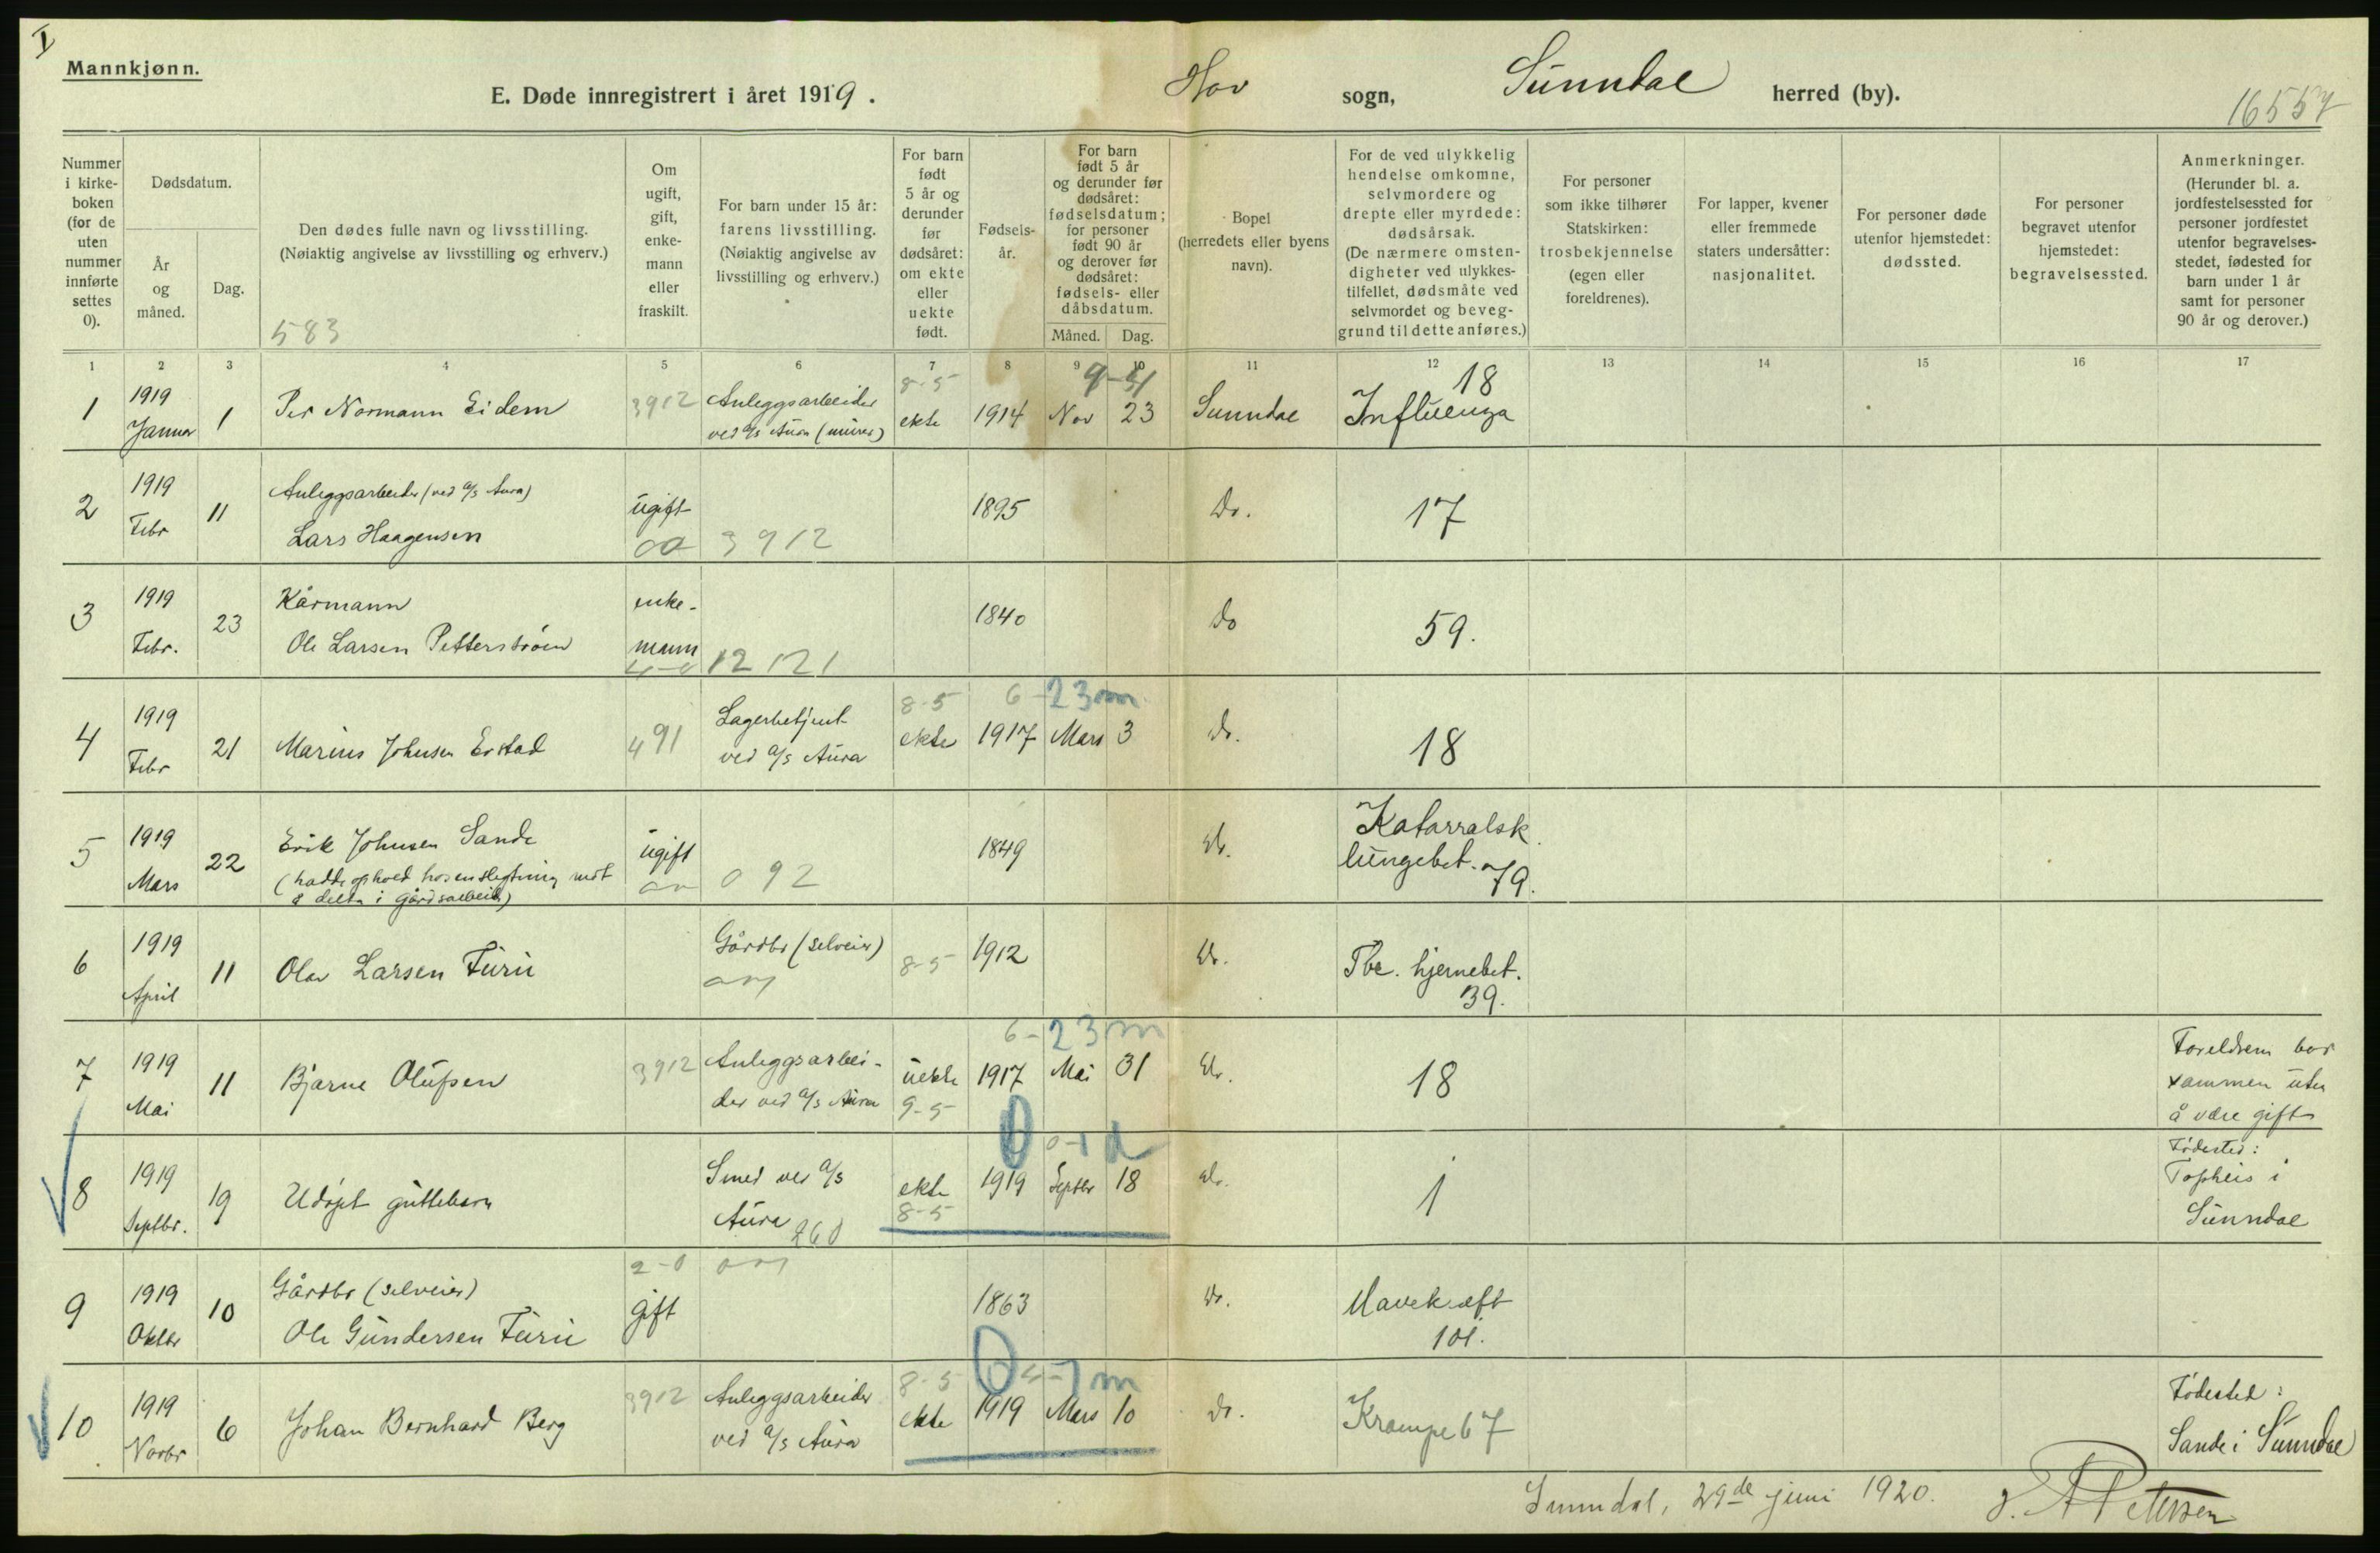 I
Mannkjønn.
E. Døde innregistrert i året 1919.
Hov sogn, Sunndal herred (by).
16557
Nummer i kirke-boken (for de uten nummer innførte settes 0).
Dødsdatum.
År og måned.
Dag.
Den dødes fulle navn og livsstilling.
(Nøiaktig angivelse av livsstilling og erhverv.)
583
Om ugift, gift, enke-mann eller fraskilt.
For barn under 15 år: farens livsstilling.
(Nøiaktig angivelse av livsstilling og erhverv.)
For barn født 5 år og derunder før dødsåret: om ekte eller uekte født.
Fødsels-år.
For barn født 5 år og derunder før dødsåret: fødselsdatum; for personer født 90 år og derover før dødsåret: fødsels- eller dåbsdatum.
Måned. Dag.
Bopel (herredets eller byens navn).
For de ved ulykkelig hendelse omkomne, selvmordere og drepte eller myrdede: dødsårsak.
(De nærmere omsten-digheter ved ulykkes-tilfellet, dødsmåte ved selvmordet og beveg-grund til dette anføres.)
For personer som ikke tilhører Statskirken: trosbekjennelse (egen eller foreldrenes).
For lapper, kvener eller fremmede staters undersåtter: nasjonalitet.
For personer døde utenfor hjemstedet: dødssted.
For personer begravet utenfor hjemstedet: begravelsessted.
Anmerkninger.
(Herunder bl. a. jordfestelsessted for personer jordfestet utenfor begravelses-stedet, fødested for barn under 1 år samt for personer 90 år og derover.)
1 2 3 4 5 6 7 8 9 10 11 12 13 14 15 16 17
1 1919 Januar 1 Per Normann Eidem 3912 Anleggsarbeider ved A/s Aura (murer) 8-5 ekte 1914 Nov 23 Sunndal 18 Influenza
2 1919 Febr 11 Anleggsarbeider (ved A/s Aura)
Lars Haagensen ugift 3912 1895 Do. 17
3 1919 Febr. 23 Kårmann
Ole Larsen Petterstrøen enke-mann 12 121 1840 Do 59.
4 1919 Febr 21 Marius Johnsen Erstad 491 Lagerbetjent ved A/s Aura 8-5 ekte 6-23m 1917 Mars 3 Do. 18
5 1919 Mars 22 Erik Johnsen Sande
(hadde ophold hos en slegtning mot å delta i gårdsarbeid) ugift 092 1849 Do. Katarralsk lungebet. 79.
6 1919 April 11 Olav Larsen Furu Gårdbr (selveier) 8-5 1912 Do. Tbc. hjernebet. 39.
7 1919 Mai 11 Bjarne Olufsen 3912 Anleggsarbei-der ved A/s Aura uekte 9-5 6-23m 1917 Mai 31 Do. 18 Foreldrene bor sammen uten å være gift
8 1919 Septbr. 19 Udøpt guttebarn Smed ved A/s Aura 260 ekte 8-5 0-1d 1919 Septbr 18 Do. 1 Fødested: Topheis i Sunndal
9 1919 Oktbr 10 Gårdbr (selveier)
Ole Gundersen Furu 2-0 gift 1863 Do. Mavekreft 101.
10 1919 Novbr 6 Johan Bernhard Berg 3912 Anleggsarbeider ved A/s Aura 8-5 ekte 1919 Mars 10 Do. Krampe 67 Fødested: Sande i Sunndal
Sunndal, 29de juni 1920.
Petersen